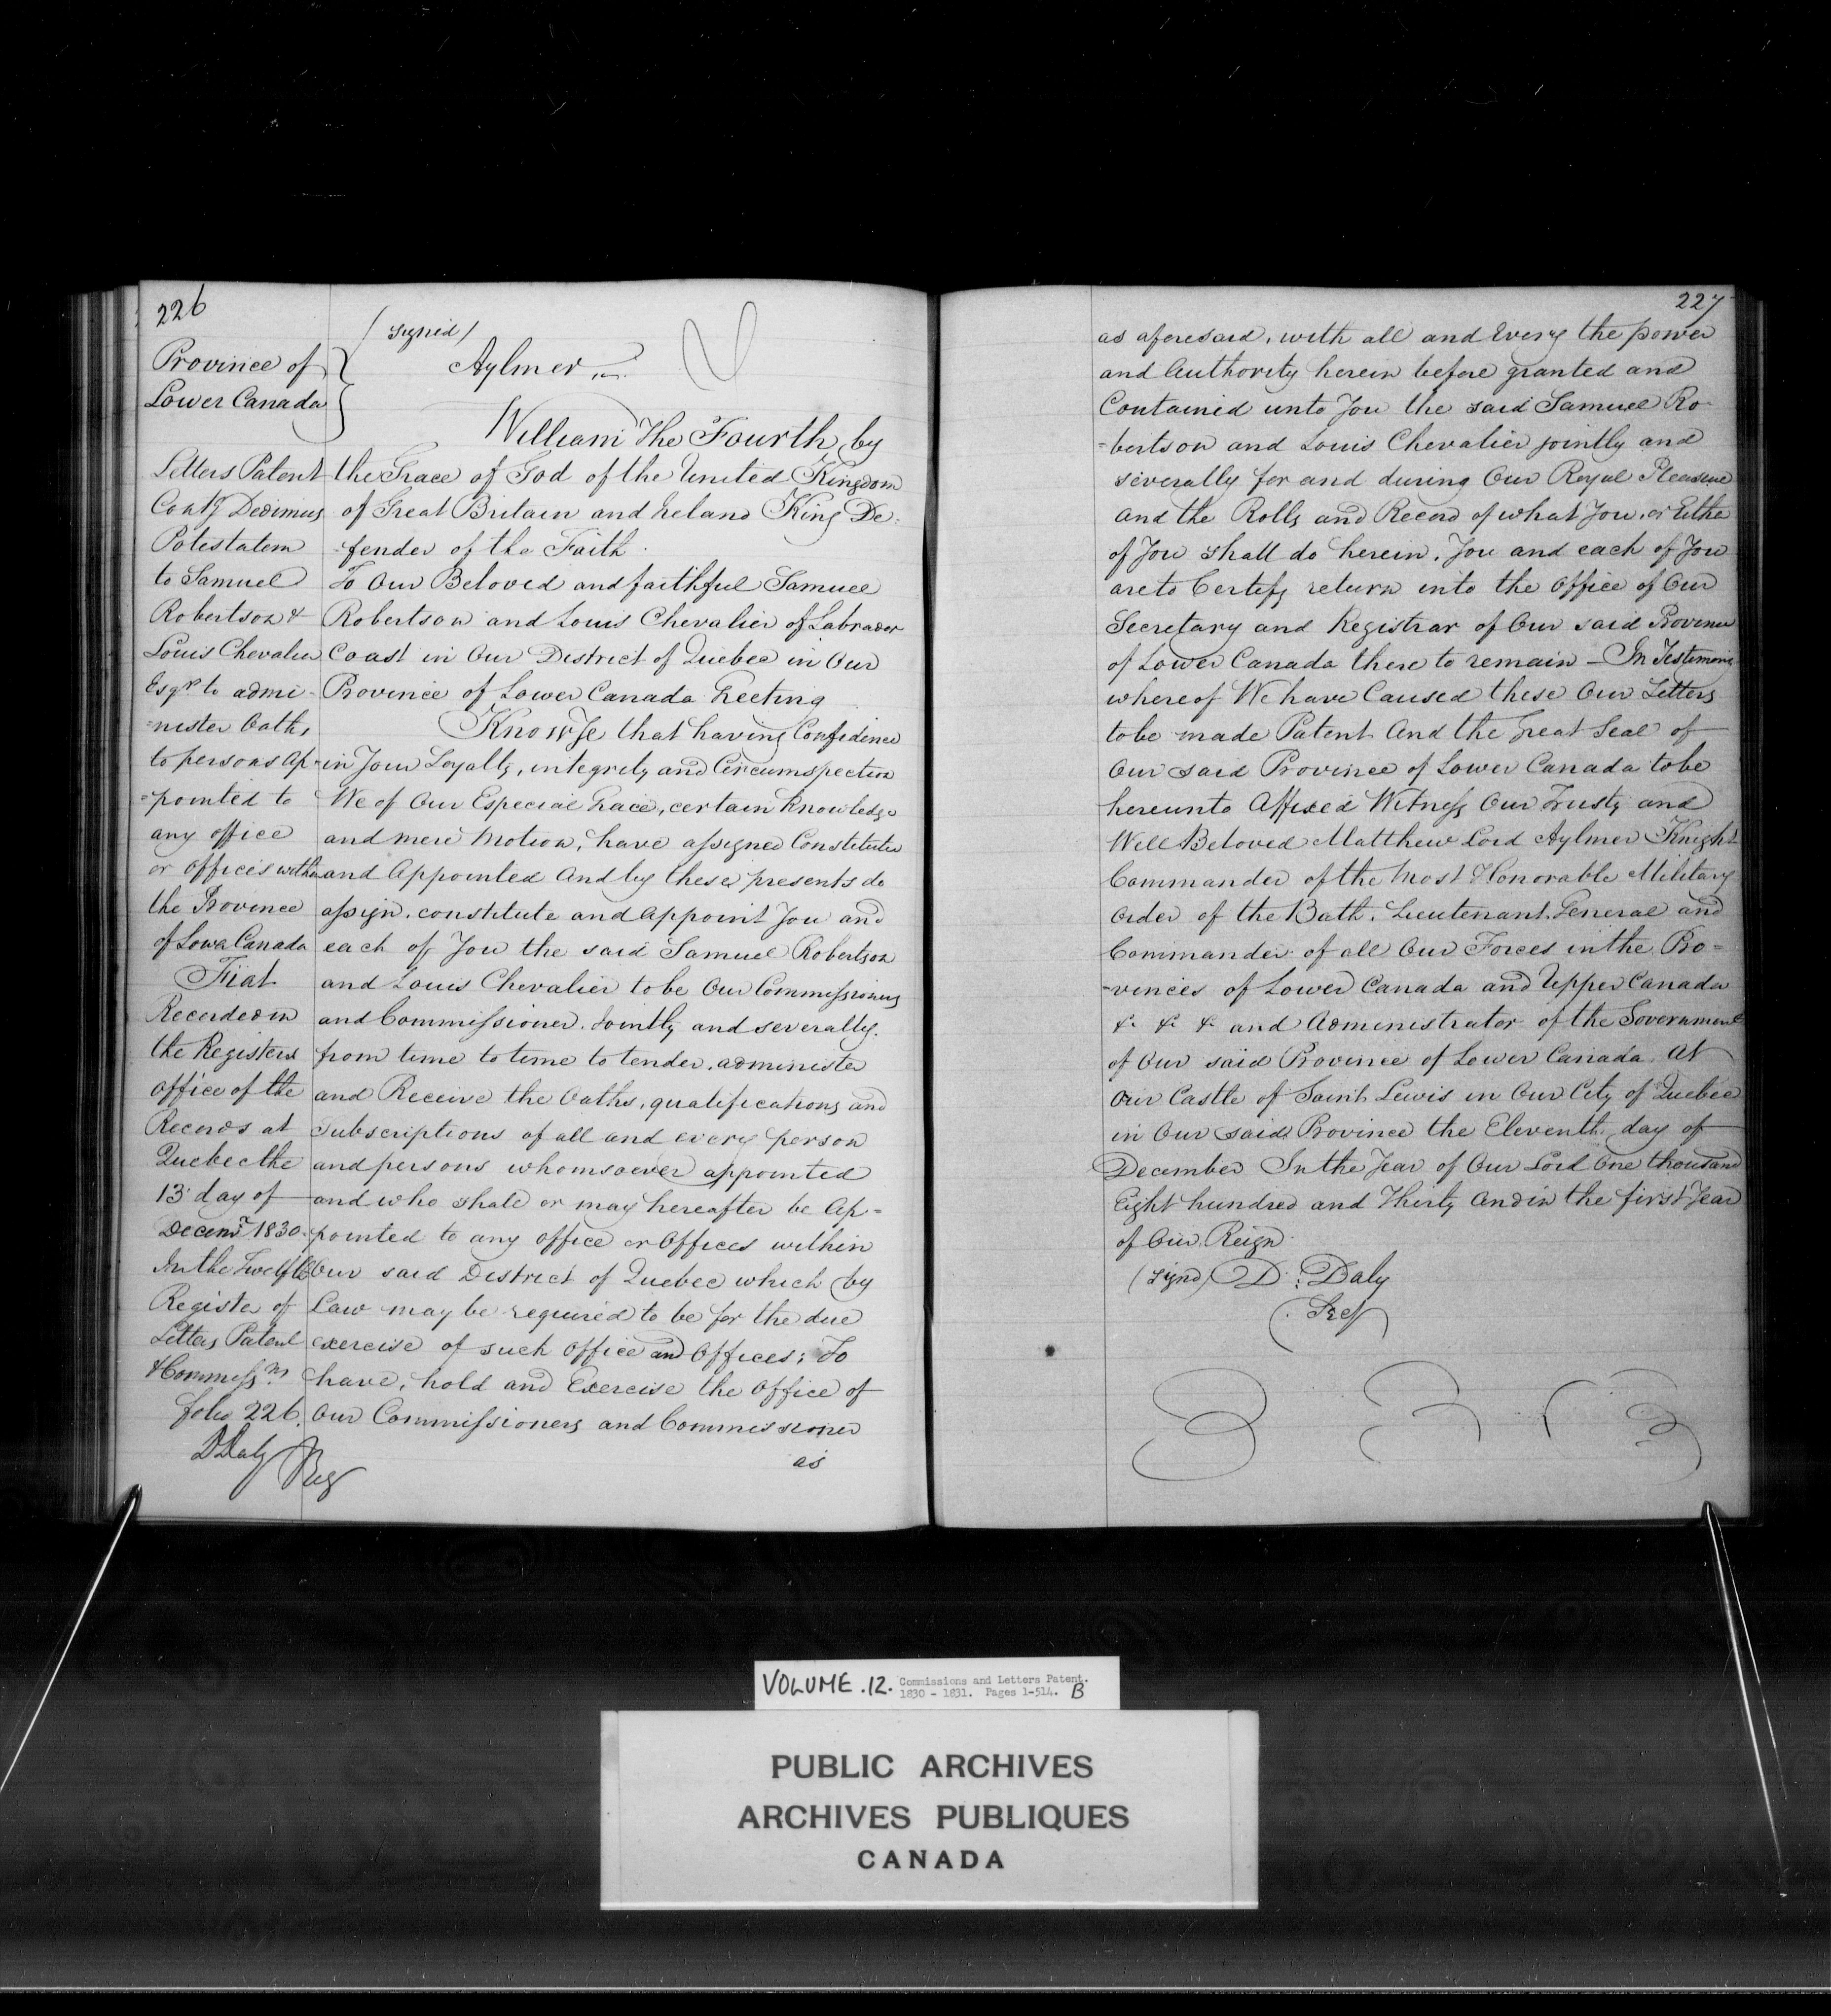 226
(signed)
Aylmer
Province of
Lower Canada
William The Fourth, by
the Grace of God of the United Kingdom
of Great Britain and Ireland King De=
=fender of the Faith.
To Our Beloved and faithful Samuel
Robertson and Louis Chevalier of Labrador
Coast in Our District of Quebec in Our
Province of Lower Canada Greeting
Know Ye that having Confidence
in Your Loyalty, integrity and Circumspection
We of Our Especial Grace, certain Knowledge
and mere Motion, have assigned Constituted
and Appointed And by these presents do
assign, constitute and appoint You and
each of You the said Samuel Robertson
and Louis Chevalier to be Our Commissioners
and Commissioner, Jointly and severally,
from time to time to tender, administer
and Receive the Oaths, qualifications and
Subscriptions of all and every person
and persons whomsoever appointed
and who shall or may hereafter be Ap=
pointed to any office or Offices within
Our said District of Quebec which by
Law may be required to be for the due
exercise of such Office and Offices; To
have, hold and Exercise the Office of
Our Commissioners and Commissioner
as
Letters Patent
Dedimus
Potestatem
to Samuel
Robertson &
Louis Chevalier
Esqrs to admi-
=nister Oaths
to persons ap-
=pointed to
any office
or offices within
the Province
of Lower Canada
Fiat
Recorded in
the Registers
office of the
Records at
Quebec the
13 day of
Decemr 1830.
In the Twelfth
Register of
Letters Patent
& Commissns
folio 226.
D Daly
Reg
227
as aforesaid, with all and Every the power
and Authority herein before granted and
Contained unto You the said Samuel Ro-
=bertson and Louis Chevalier jointly and
severally for and during Our Royal Pleasure
and the Rolls and Record of what You, or Either
of You shall do herein, You and each of You
are to Certify return into the Office of Our
Secretary and Registrar of Our said Province
of Lower Canada there to remain – In Testimony
whereof We have Caused these Our Letters
to be made Patent And the Great Seal of
Our said Province of Lower Canada to be
hereunto Affixed Witness Our Trusty and
Well Beloved Matthew Lord Aylmer Knight
Commander of the Most Honorable Military
Order of the Bath, Lieutenant General and
Commander of all Our Forces in the Pro=
-vinces of Lower Canada and Upper Canada
&c &c &c and Administrator of the Government
of Our said Province of Lower Canada. At
Our Castle of Saint Lewis in Our City of Quebec
in Our said Province the Eleventh day of
December In the Year of Our Lord One thousand
Eight hundred and Thirty and in the first Year
of Our Reign.
(Signd) D: Daly
Secy
VOLUME .12. Commissions and Letters Patent.
1830 - 1831. Pages 1-514. B
PUBLIC ARCHIVES
ARCHIVES PUBLIQUES
CANADA